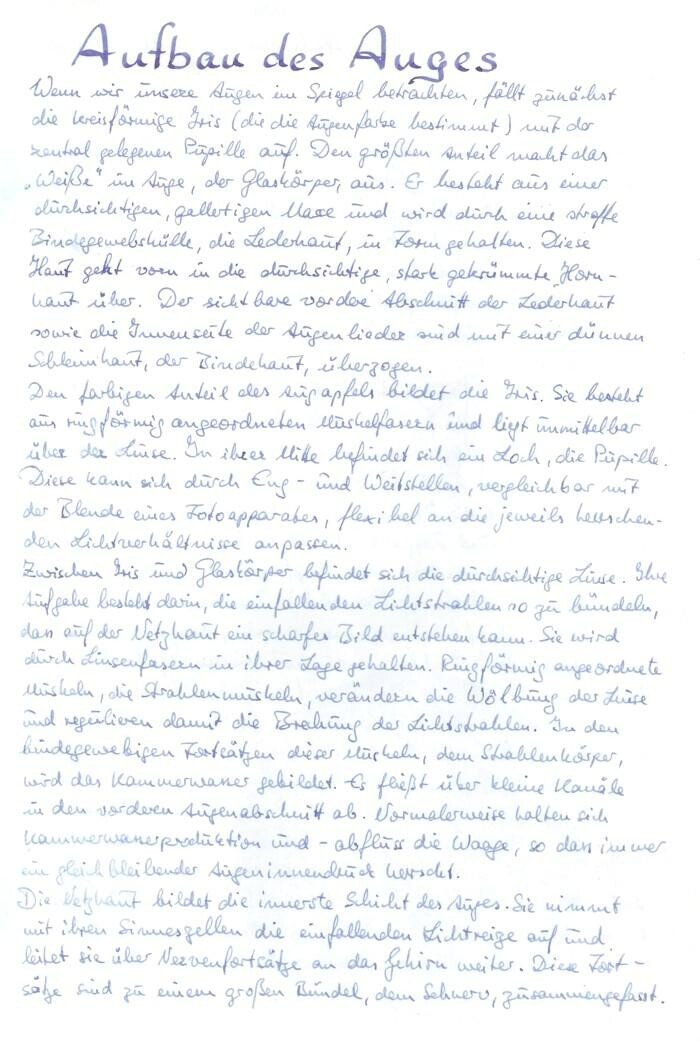 Aufbau des Auges
Wenn wir unsere Augen im Spiegel betrachten, fällt zunächst
die kreisförmige Iris (die die Augenfarbe bestimmt) mit der
zentral gelegenen Pupille auf. Den größten Anteil macht das
„Weiße" im Auge, der Glaskörper, aus. Er besteht aus einer
durchsichtigen, gallertigen Masse und wird durch eine straffe
Bindegewebshülle, die Lederhaut, in Form gehalten. Diese
Haut geht vorn in die durchsichtige, stark gekrümmte Horn-
haut über. Der sichtbare vordere Abschnitt der Lederhaut
sowie die Innenseite der Augenlieder sind mit einer dünnen
Schleimhaut, der Bindehaut, überzogen.
Den farbigen Anteil des Augapfels bildet die Iris. Sie besteht
aus ringförmig angeordneten Muskelfasern und liegt unmittelbar
über der Linse. In ihrer Mitte befindet sich ein Loch, die Pupille.
Diese kann sich durch Eng- und Weitstellen, vergleichbar mit
der Blende eines Fotoapparates, flexibel an die jeweils herrschen-
den Lichtverhältnisse anpassen.
Zwischen Iris und Glaskörper befindet sich die durchsichtige Linse. Ihre
Aufgabe besteht darin, die einfallenden Lichtstrahlen so zu bündeln,
dass auf der Netzhaut ein scharfes Bild entstehen kann. Sie wird
durch Linsenfasern in ihrer Lage gehalten. Ringförmig angeordnete
Muskeln, die Strahlenmuskeln, verändern die Wölbung der Linse
und regulieren damit die Brechung der Lichtstrahlen. In den
bindegewebigen Fortsätzen dieser Muskeln, dem Strahlenkörper,
wird das Kammerwasser gebildet. Es fließt über kleine Kanäle
in den vorderen Augenabschnitt ab. Normalerweise halten sich
Kammerwasserproduktion und -abfluss die Waage, so dass immer
ein gleichbleibender Augeninnendruck herrscht.
Die Netzhaut bildet die innerste Schicht des Auges. Sie nimmt
mit ihren Sinneszellen die einfallenden Lichtreize auf und
leitet sie über Nervenfortsätze an das Gehirn weiter. Diese Fort-
sätze sind zu einem großen Bündel, dem Sehnerv, zusammengefasst.